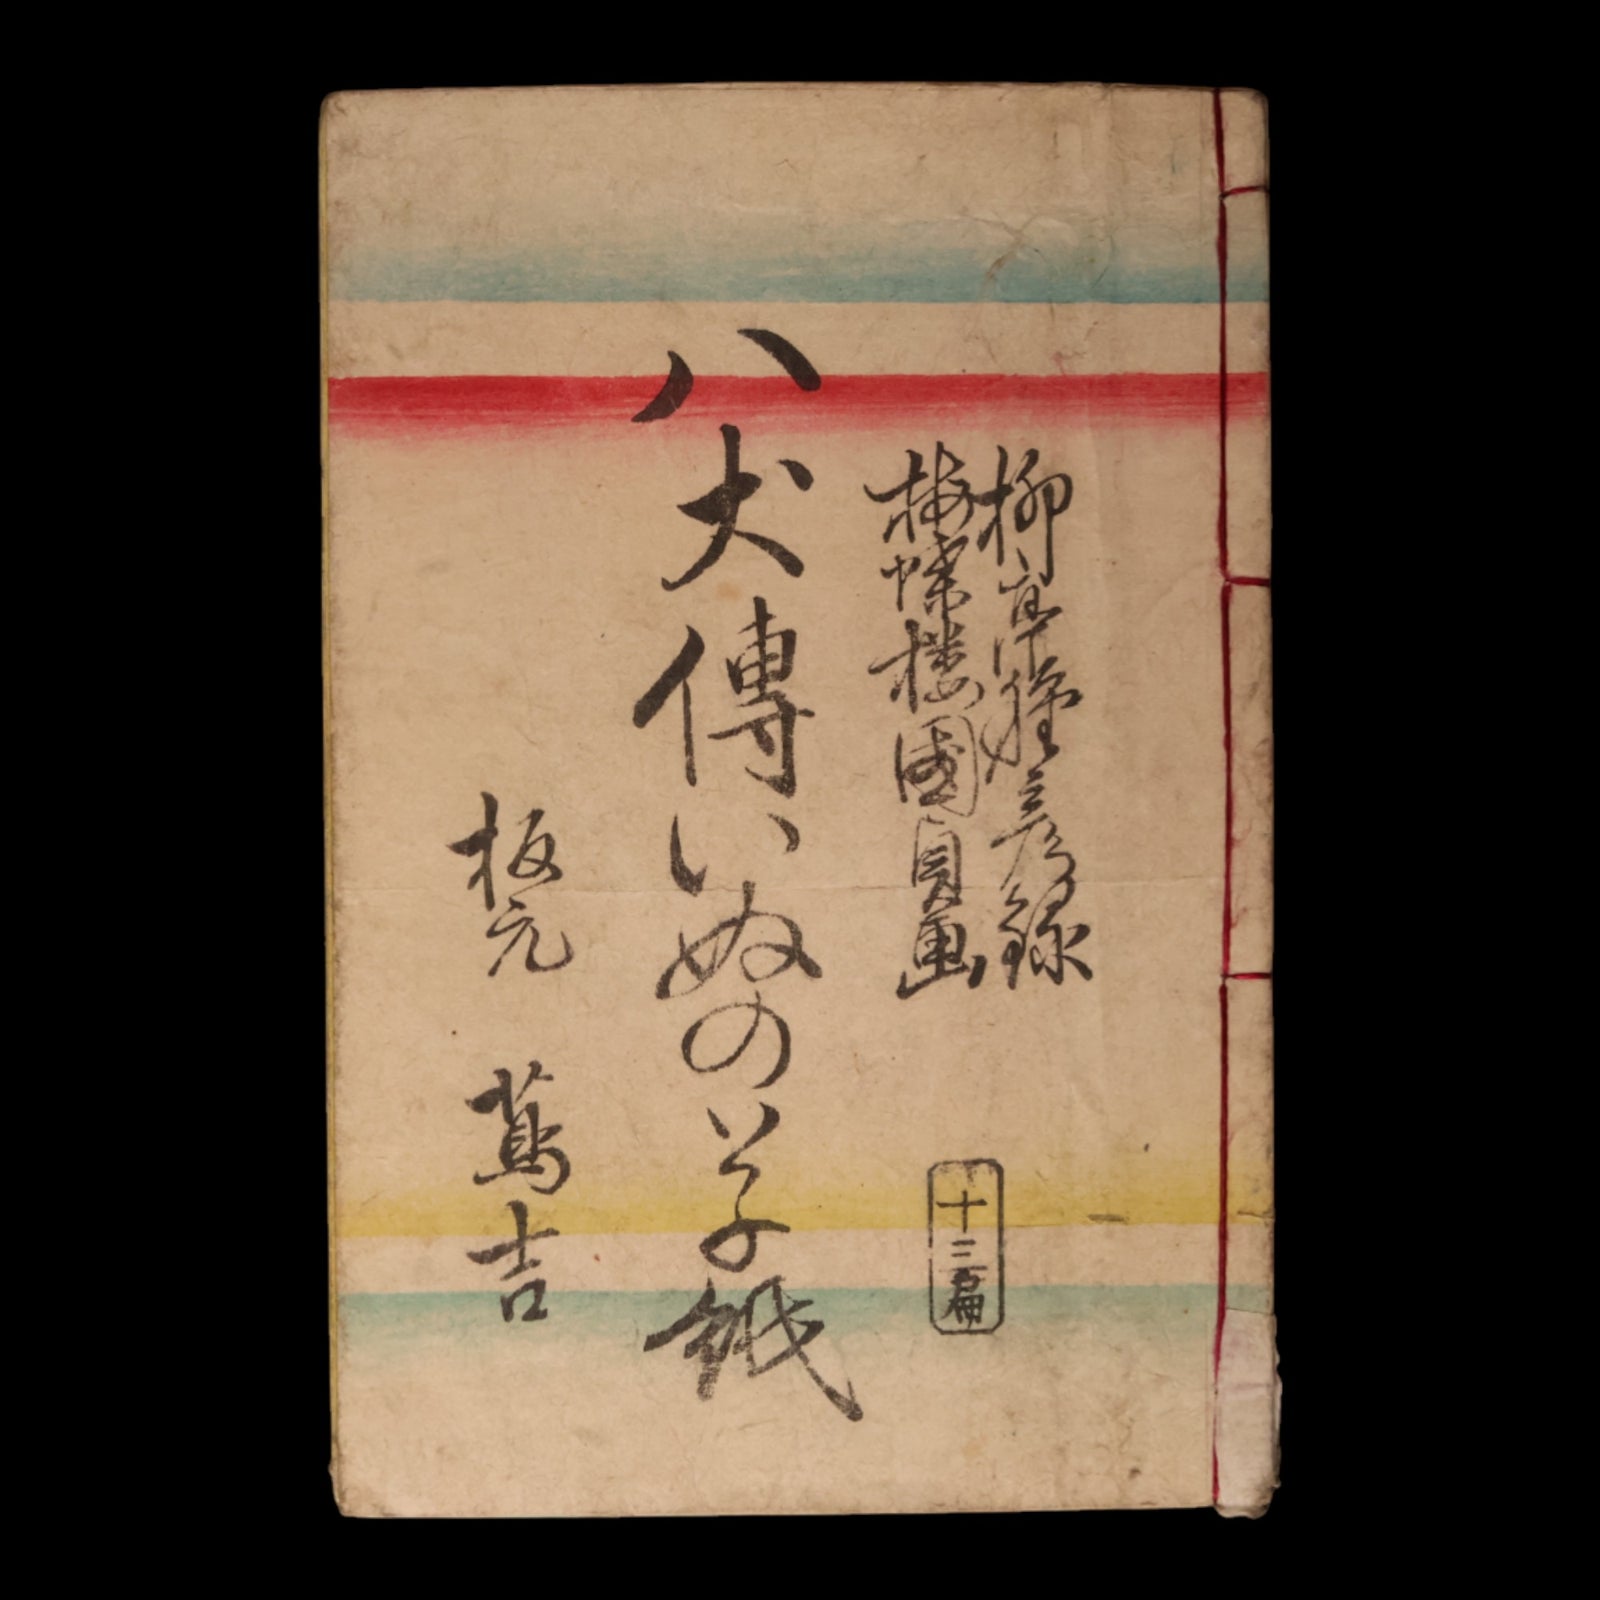 柳亭種彦録
梅蝶楼國貞画
十三篇
八犬傳いぬの草紙
板元 蔦吉